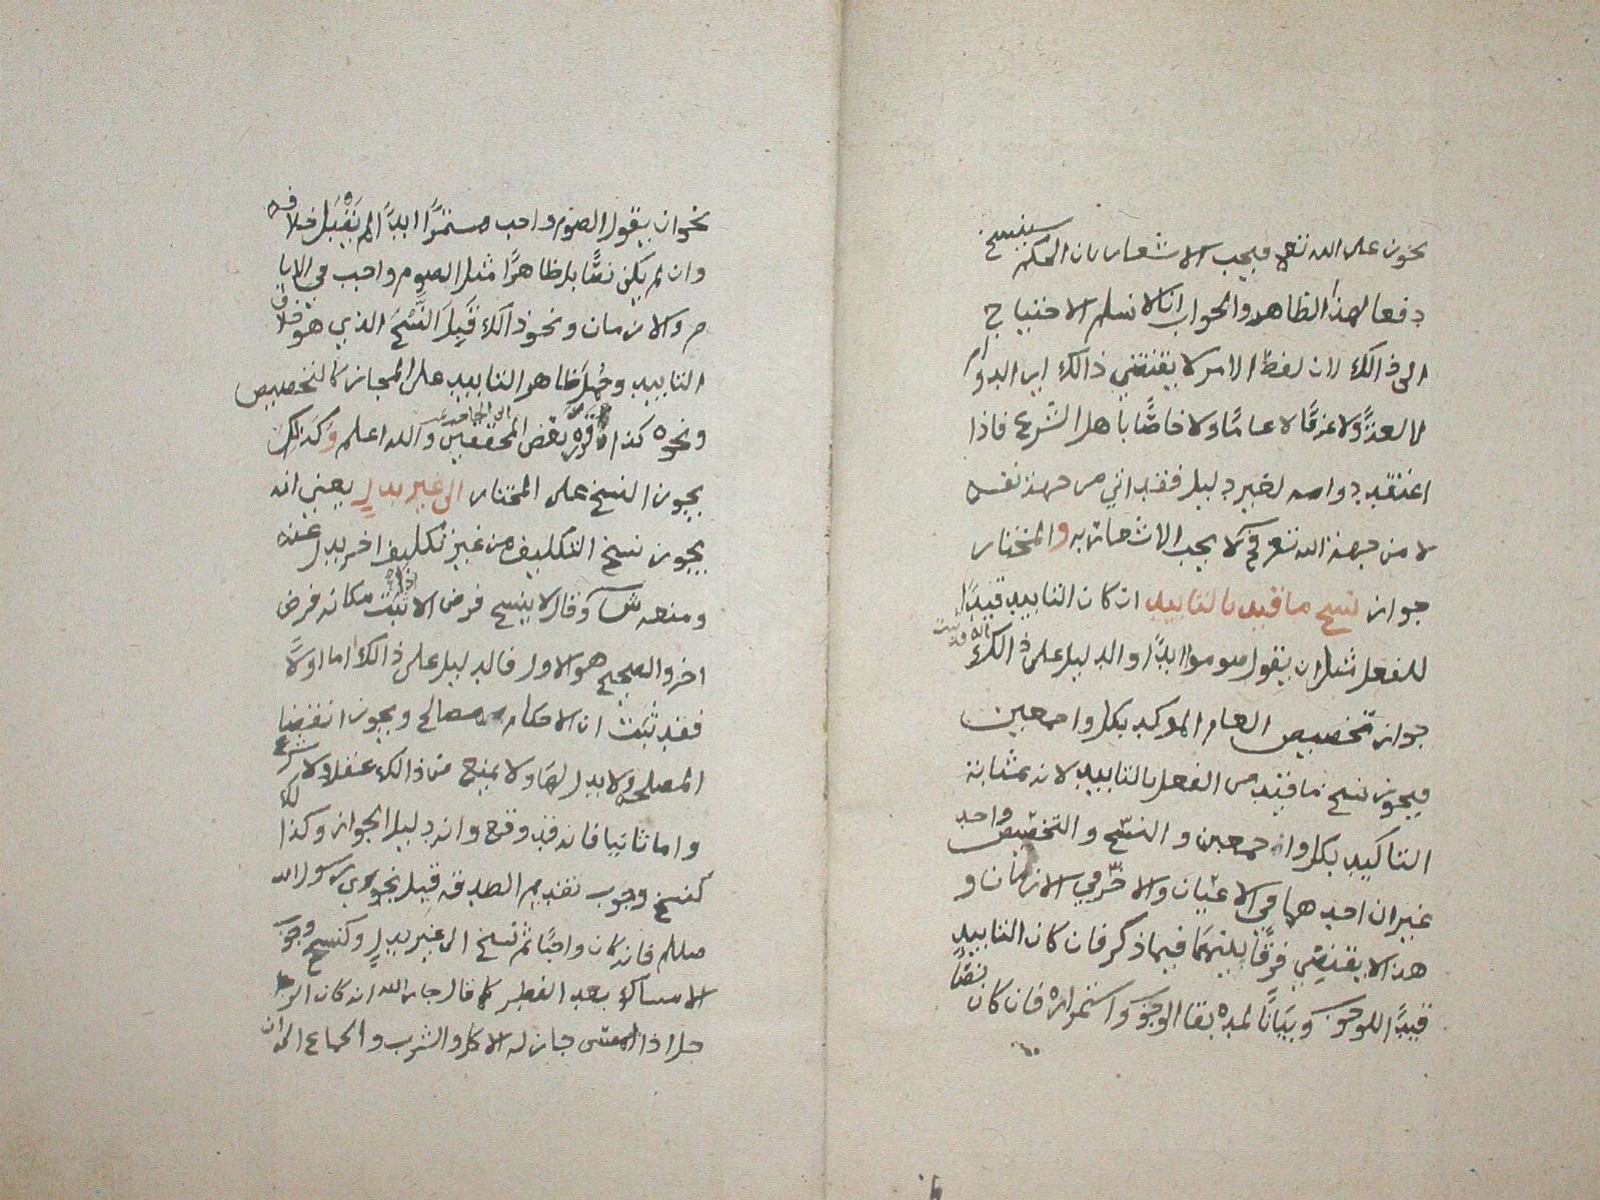 يجوز على الله تعالى فيجب الاشعار بان الحكم سينسخ
دفعا لهذا الظاهر والجواب انا لا نسلم الاحتياج
الى ذالك لان لفظ الامر لا يقتضي ذالك اي الدوام
لا لغةً ولا عرفًا لا عامًا ولا خاصًّا باهل الشرع فاذا
اعتقد دوامه لغير دليل فقد اتي من جهة نفسه
لا من جهة الله تعالى فلا يجب الاشعار به والمختار
جواز نسخ ما قيد بالتابيد ان كان التابيد قيدًا
للفعل مثل ان يقول صوموا ابدًا والدليل على ذالك انه قد ثبت
جواز تخصيص العام الموكد بكل واجمعين
فيجوز نسخ ما قيد من الفعل بالتابيد لانه بمثابة
التاكيد بكل واجمعين والنسخ والتخصيص واحد
غير ان احدهما في الاعيان والاخر في الازمان و
هذا لا يقتضي فرقًا بينهما فيما ذكر فان كان التابيد
قيدًا للوجوب وبيانًا لمدة بقا الوجوب واستمراره فان كان نصًّا
نحو ان يقول الصوم واجب مستمرًّا ابدًا لم يقبل خلافه
وان لم يكن نصًّا بل ظاهرًا مثل الصوم واجب في الايا
م والازمان ونحو ذالك قبل النسخ الذي هو خلاف
التابيد وحمل ظاهر التابيد على المجاز كالتخصيص
ونحوه كذا قرره بعض المحققين والله اعلم وكذالك
يجوز النسخ على المختار الى غير بدل يعني انه
يجوز نسخ التكليف من غير تكليف اخر بدل عنه
ومنعه ش وقال لا ينسخ فرض الا ثبت مكانه فرض
اخر والصحيح هو الاول فالدليل على ذالك اما اولاً
فقد ثبت ان الاحكام مصالح ويجوز انقضا
المصلحة ولا بدل لها ولا يمنع من ذالك عقل ولا شرع
واما ثانيا فانه قد وقع وانه دليل الجواز وكذا لك
كنسخ وجوب تقديم الصدقة قبل نجوى رسول الله
صللم فانه كان واجبًا ثم نسخ الى غير بدلٍ وكنسخ وجوب
الامساك بعد الفطر كما قال جار الله انه كان الر
جل اذا امسى جاز له الاكل والشرب والجماع الى ان